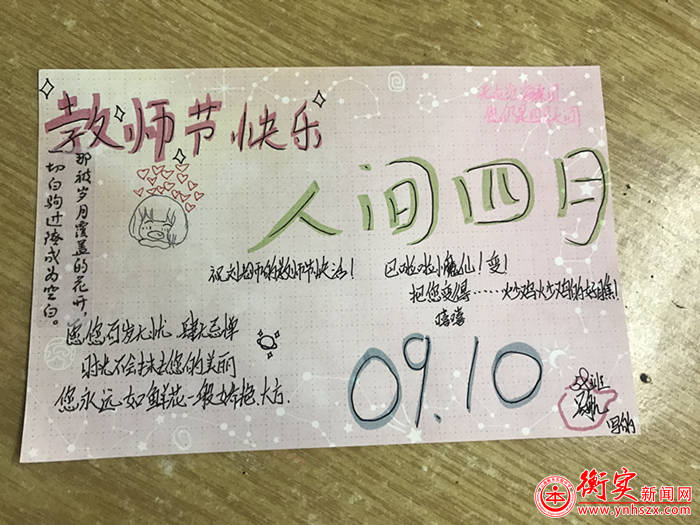 教师节快乐
人间四月
那被岁月覆盖的花开，
一切白驹过隙成为空白。
祝刘老师教师节快乐！
巴啦啦小魔仙！变！
把您变得……炒鸡炒鸡的好瞧！
嘻嘻
愿您百岁无忧 肆无忌惮
时光不会抹去您的美丽
您永远如鲜花一般娇艳大方.
09.10
写的
衡实新闻网
www.ynhszx.com